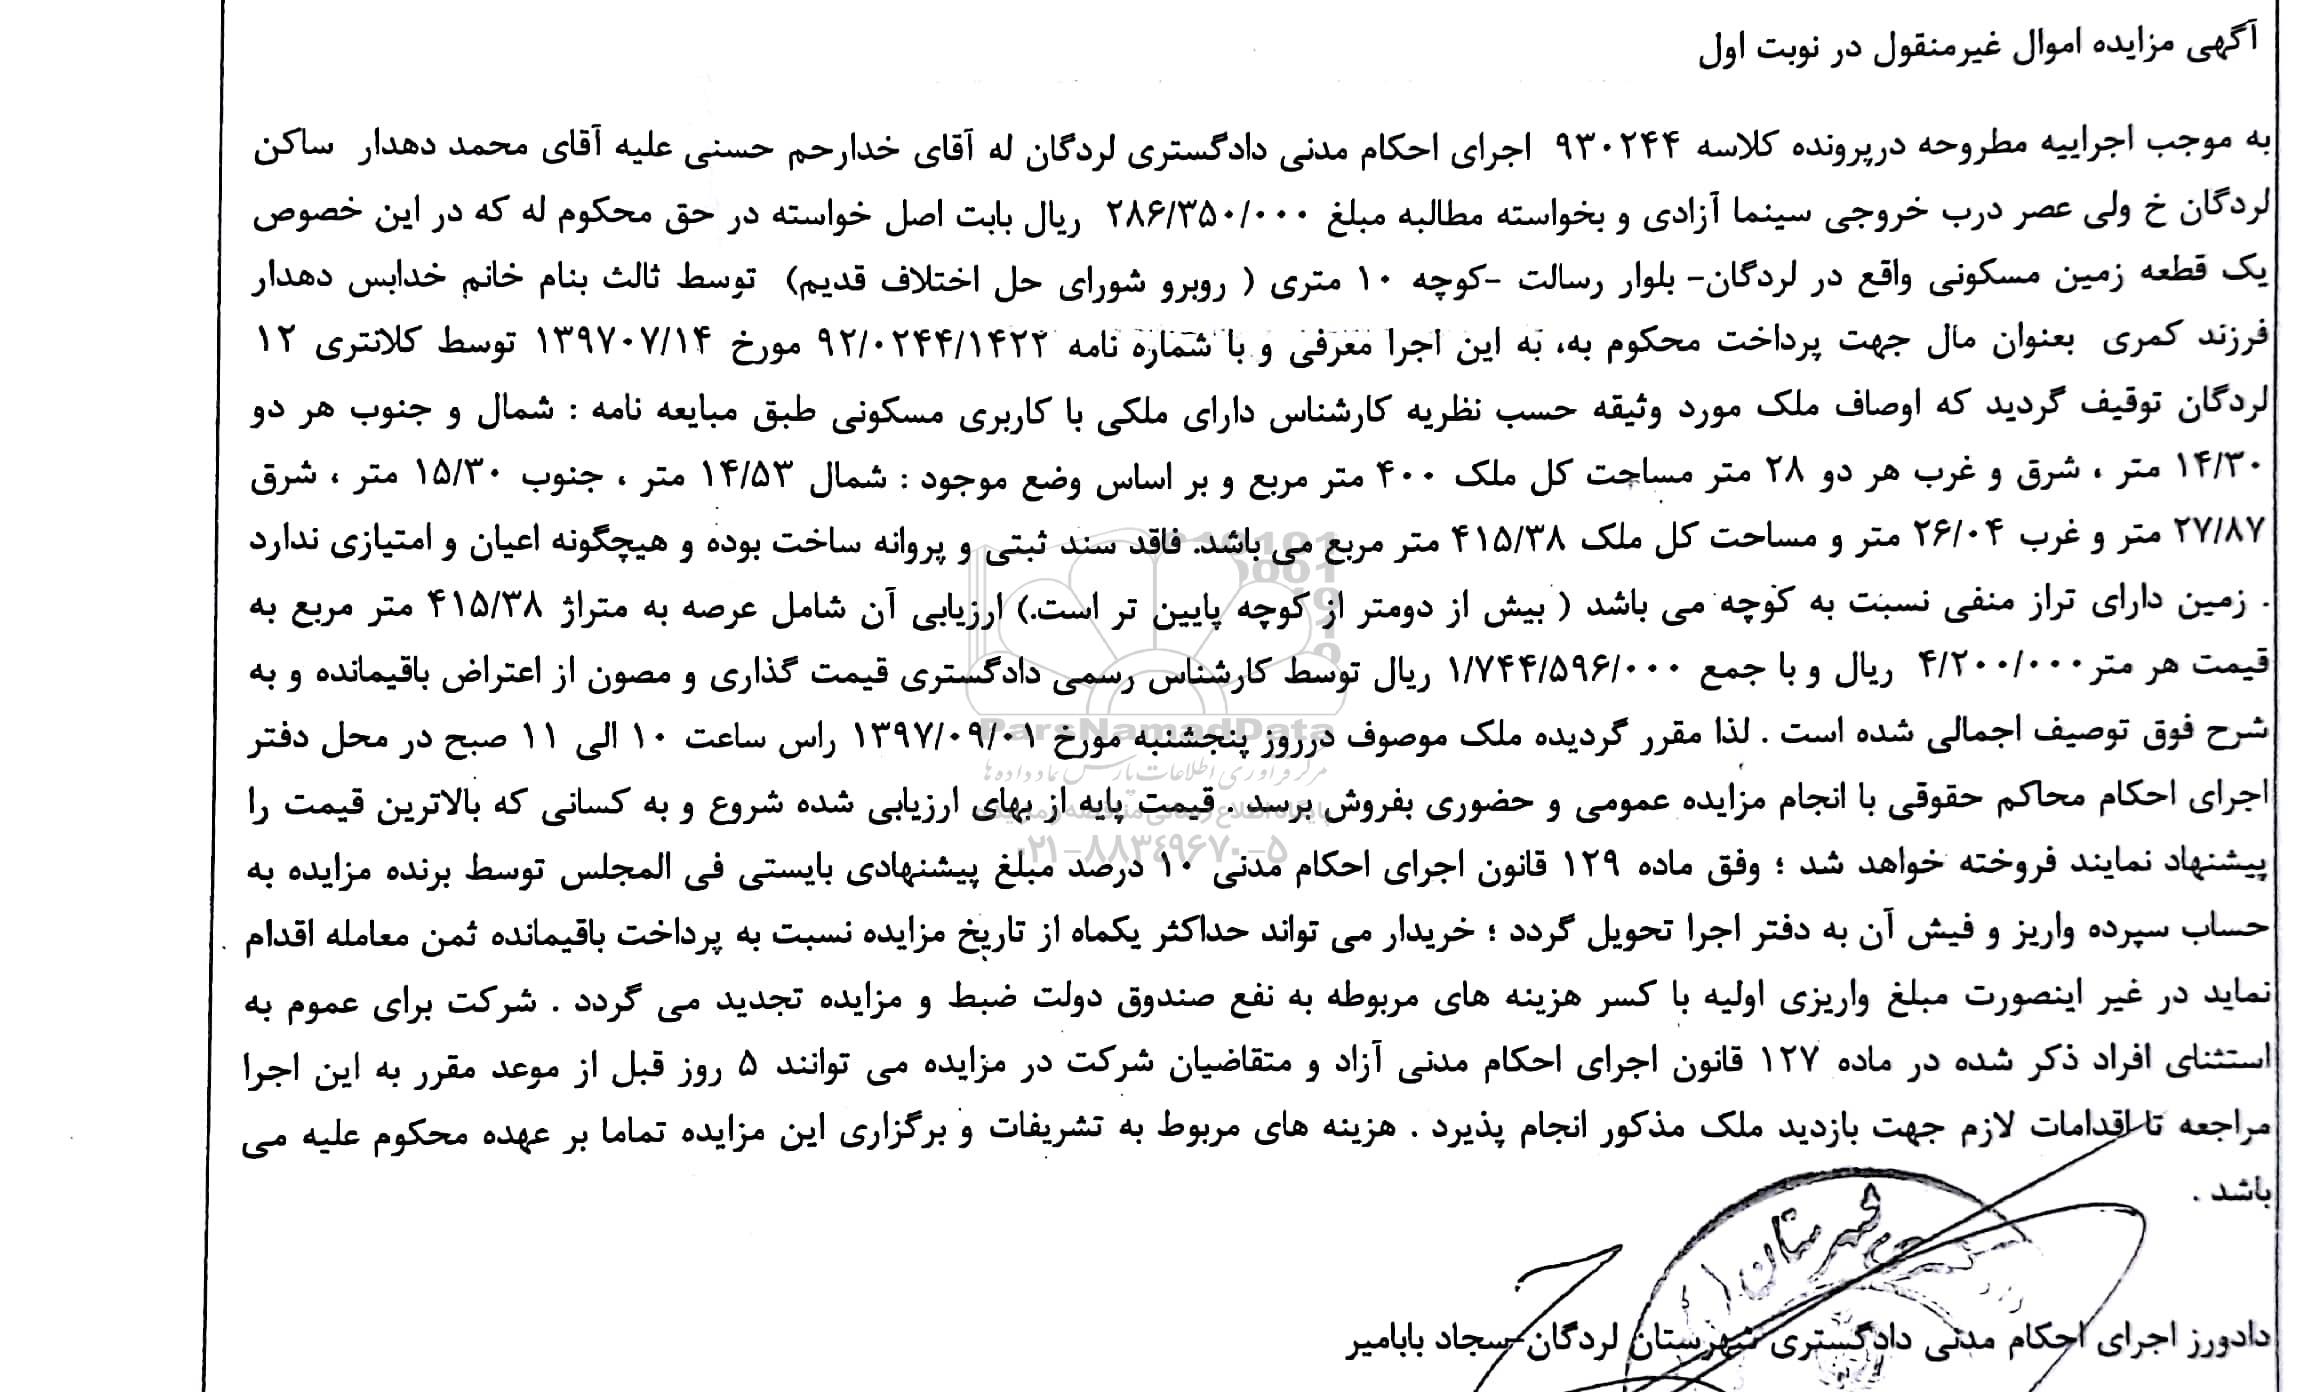 آگهی مزایده اموال غیرمنقول در نوبت اول
به موجب اجراییه مطروحه درپرونده کلاسه ۹۳۰۲۴۴ اجرای احکام مدنی دادگستری لردگان له آقای خدارحم حسنی علیه آقای محمد دهدار ساکن
لردگان خ ولی عصر درب خروجی سینما آزادی و بخواسته مطالبه مبلغ ۲۸۶/۳۵۰/۰۰۰ ریال بابت اصل خواسته در حق محکوم له که در این خصوص
یک قطعه زمین مسکونی واقع در لردگان- بلوار رسالت -کوچه ۱۰ متری ( روبرو شورای حل اختلاف قدیم) توسط ثالث بنام خانم خدابس دهدار
فرزند کمری بعنوان مال جهت پرداخت محکوم به، به این اجرا معرفی و با شماره نامه ۹۲/۰۲۴۴/۱۴۲۲ مورخ ۱۳۹۷۰۷/۱۴ توسط کلانتری ۱۲
لردگان توقیف گردید که اوصاف ملک مورد وثیقه حسب نظریه کارشناس دارای ملکی با کاربری مسکونی طبق مبایعه نامه : شمال و جنوب هر دو
۱۴/۳۰ متر ، شرق و غرب هر دو ۲۸ متر مساحت کل ملک ۴۰۰ متر مربع و بر اساس وضع موجود : شمال ۱۴/۵۳ متر ، جنوب ۱۵/۳۰ متر ، شرق
۲۷/۸۷ متر و غرب ۲۶/۰۴ متر و مساحت کل ملک ۴۱۵/۳۸ متر مربع می باشد. فاقد سند ثبتی و پروانه ساخت بوده و هیچگونه اعیان و امتیازی ندارد
. زمین دارای تراز منفی نسبت به کوچه می باشد ( بیش از دومتر از کوچه پایین تر است.) ارزیابی آن شامل عرصه به متراژ ۴۱۵/۳۸ متر مربع به
قیمت هر متر۴/۲۰۰/۰۰۰ ریال و با جمع ۱/۷۴۴/۵۹۶/۰۰۰ ریال توسط کارشناس رسمی دادگستری قیمت گذاری و مصون از اعتراض باقیمانده و به
شرح فوق توصیف اجمالی شده است . لذا مقرر گردیده ملک موصوف درروز پنجشنبه مورخ ۱۳۹۷/۰۹/۰۱ راس ساعت ۱۰ الی ۱۱ صبح در محل دفتر
اجرای احکام محاکم حقوقی با انجام مزایده عمومی و حضوری بفروش برسد . قیمت پایه از بهای ارزیابی شده شروع و به کسانی که بالاترین قیمت را
پیشنهاد نمایند فروخته خواهد شد ؛ وفق ماده ۱۲۹ قانون اجرای احکام مدنی ۱۰ درصد مبلغ پیشنهادی بایستی فی المجلس توسط برنده مزایده به
حساب سپرده واریز و فیش آن به دفتر اجرا تحویل گردد ؛ خریدار می تواند حداکثر یکماه از تاریخ مزایده نسبت به پرداخت باقیمانده ثمن معامله اقدام
نماید در غیر اینصورت مبلغ واریزی اولیه با کسر هزینه های مربوطه به نفع صندوق دولت ضبط و مزایده تجدید می گردد . شرکت برای عموم به
استثنای افراد ذکر شده در ماده ۱۲۷ قانون اجرای احکام مدنی آزاد و متقاضیان شرکت در مزایده می توانند ۵ روز قبل از موعد مقرر به این اجرا
مراجعه تا اقدامات لازم جهت بازدید ملک مذکور انجام پذیرد . هزینه های مربوط به تشریفات و برگزاری این مزایده تماما بر عهده محکوم علیه می
باشد .
دادورز اجرای احکام مدنی دادگستری شهرستان لردگان-سجاد بابامیر
ParsNamadData
مرکز فرآوری اطلاعات پارس نماد داده ها
۰۲۱-۸۸۳۴۹۶۷۰-۵